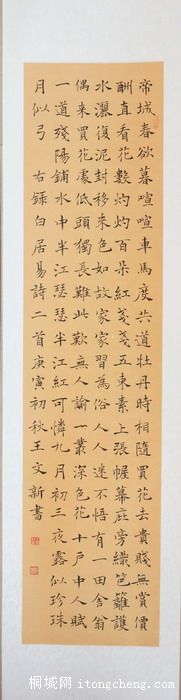 帝城春欲暮喧喧車馬度共道牡丹時相隨買花去貴賤無賞價
酬直看花數灼灼百朵紅戔戔五束素上張幄幕庇旁織笆籬護
水灑復泥封移來色如故家家習爲俗人人迷不悟有一田舍翁
偶來買花處低頭獨長歎此歎無人諭一叢深色花十戶中人賦
一道殘陽鋪水中半江瑟瑟半江紅可憐九月初三夜露似珍珠
月似弓 右錄白居易詩二首庚寅初秋王文新書
桐城网 itongcheng.com